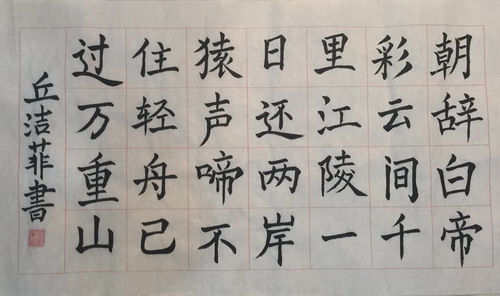 朝辞白帝
彩云间千
里江陵一
日还两岸
猿声啼不
住轻舟已
过万重山
丘洁菲書